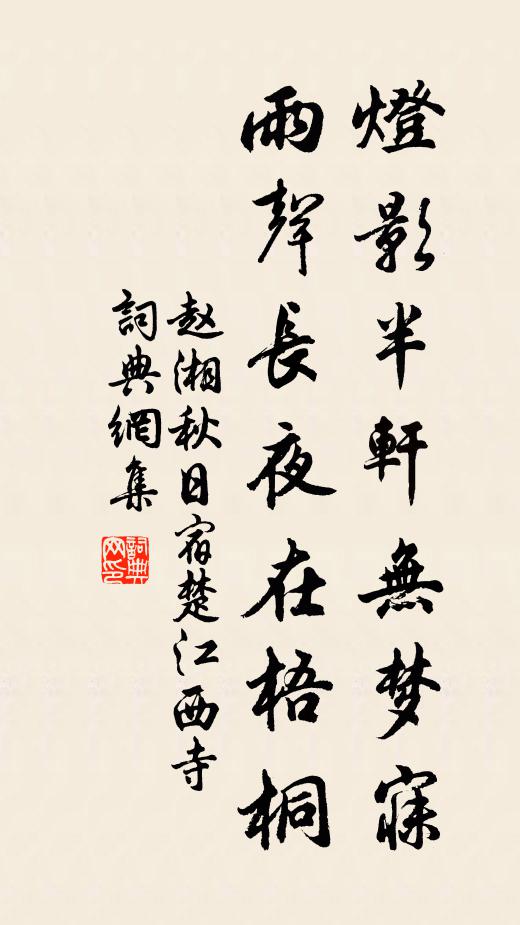 燈影半軒無梦寐
雨聲長夜在梧桐
赵湘秋日宿楚江西寺
詞典網集
詞典网印